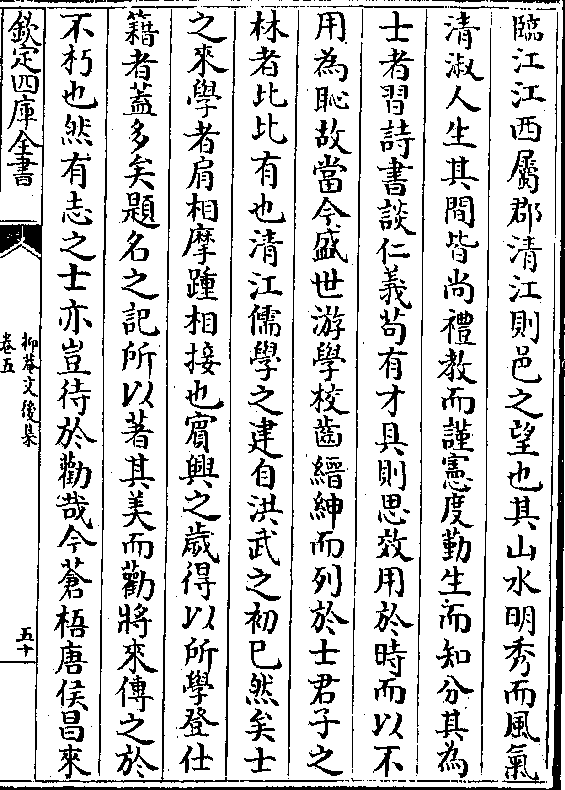 臨江江西屬郡清江則邑之望也其山水明秀而風氣
清淑人生其間皆尚禮教而謹憲度勤生而知分其為
士者習詩書談仁義苟有才具則思效用於時而以不
用為恥故當今盛世游學校齒縉紳而列於士君子之
林者比比有也清江儒學之建自洪武之初已然矣士
之來學者肩相摩踵相接也賔興之歲得以所學登仕
籍者蓋多矣題名之記所以著其美而勸將來傳之於
不朽也然有志之士亦豈待於勸哉今蒼梧唐侯昌來
欽定四庫全書
抑菴文後集
卷五
五十